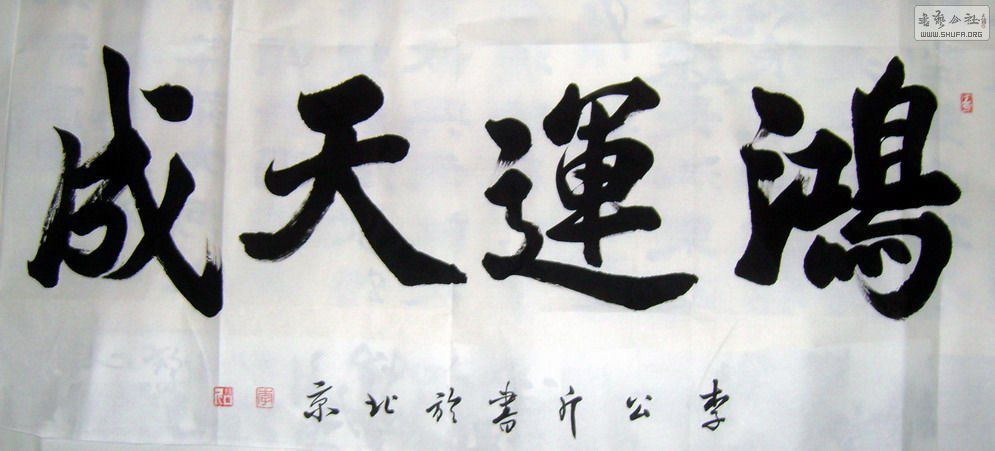 鴻運天成
李公斤書於北京
書藝公社
WWW.SHUFA.ORG